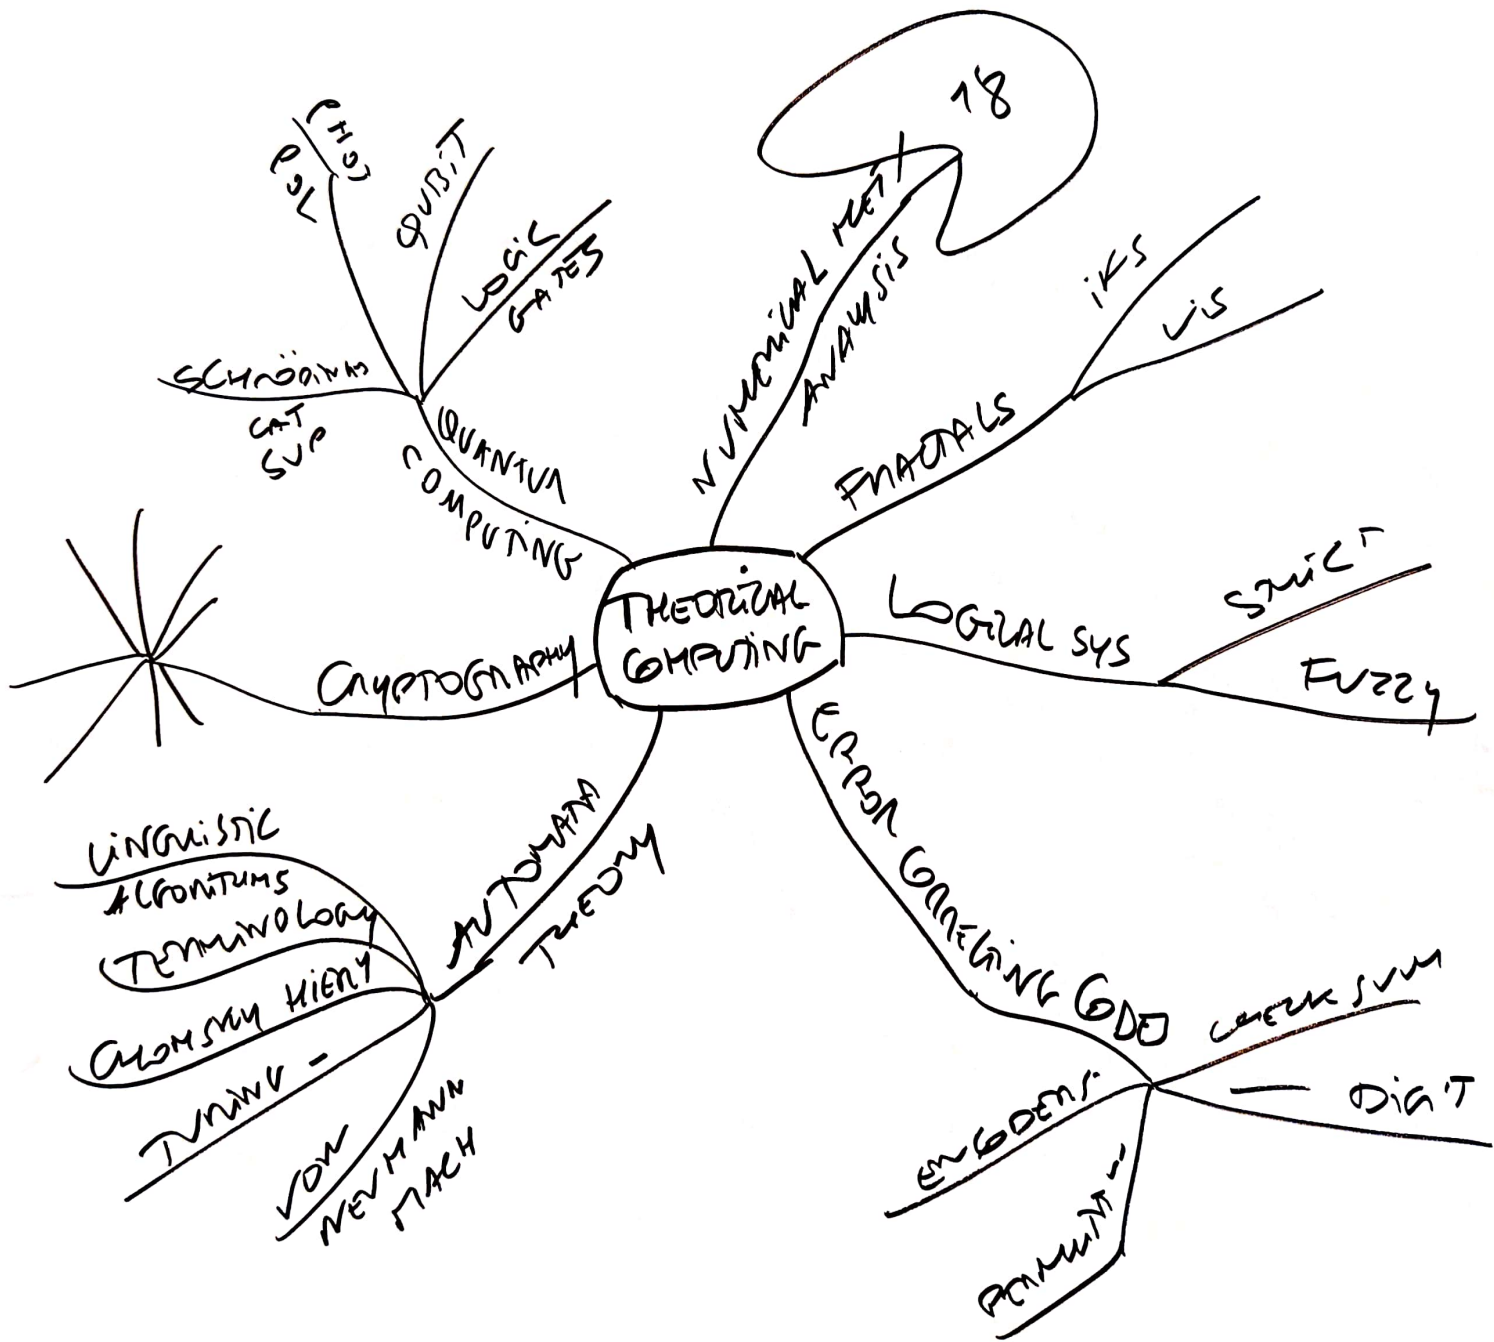 THEORICAL
COMPUTING
NUMERICAL MET
ANALYSIS
18
FRACTALS
iFS
LiS
LOGICAL SYS
STRICT
FUZZY
ERROR CORRECTING CODE
CHECK SUM
— DIGIT
ENCODERS
PERMUTAT--
AUTOMATA
THEORY
LINGUISTIC
ALGORITHMS
TERMINOLOGY
CHOMSKY HIERY
TURING -
VON
NEUMANN
MACH
CRYPTOGRAPHY
QUANTUM
COMPUTING
SCHRÖDINGS
CAT
SUP
PHOT
POL
QUBIT
LOGIC
GATES